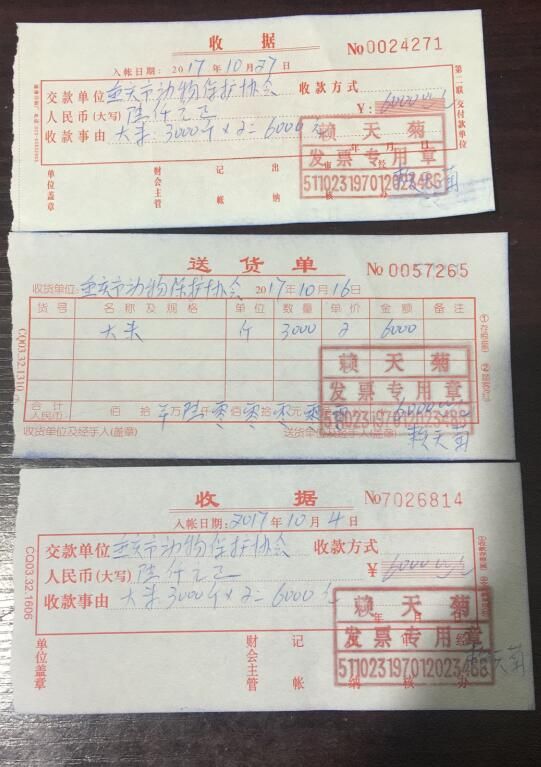 收 据
No 0024271
入帐日期: 2017 年 10 月 27 日
交款单位 重庆市动物保护协会 收款方式
人民币(大写) 陆仟元正 ¥: 6000
收款事由 大米 3000斤×2=6000元
年 月 日
第二联 交付款单位
单位盖章 财会主管 记帐 出纳 审核 经办
赖天菊
发票专用章
赖天菊
送 货 单
No 0057265
收货单位: 重庆市动物保护协会 2017年10月16日
货号 名称及规格 单位 数量 单价 金额 备注
大米 斤 3000 2 6000
合计人民币: 佰 拾 万陆仟零佰零拾零元零角零分 6000
收货单位及经手人(盖章) 送货单位及经手人(盖章) 赖天菊
赖天菊
发票专用章
收 据
No 7026814
入帐日期: 2017年10月4日
交款单位 重庆市动物保护协会 收款方式
人民币(大写) 陆仟元正 ¥ 6000
收款事由 大米3000斤×2=6000元
年 月 日
CO03.32.1606
单位盖章 财会主管 记帐 出纳 审核 经办
赖天菊
发票专用章
赖天菊